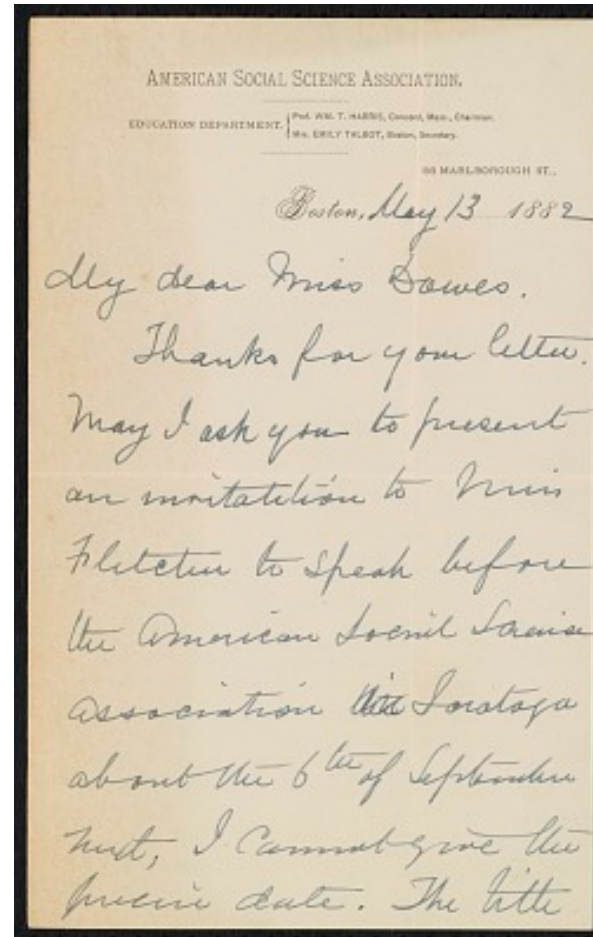 AMERICAN SOCIAL SCIENCE ASSOCIATION.
EDUCATION DEPARTMENT.
Prof. WM. T. HARRIS, Concord, Mass., Chairman.
Mrs. EMILY TALBOT, Boston, Secretary.
66 MARLBOROUGH ST.,
Boston, May 13 1882
My dear Miss Dawes.
Thanks for your letter.
May I ask you to present
an invitation to Miss
Fletcher to speak before
the American Social Science
Association in Saratoga
about the 6th of September
next, I cannot give the
precise date. The title